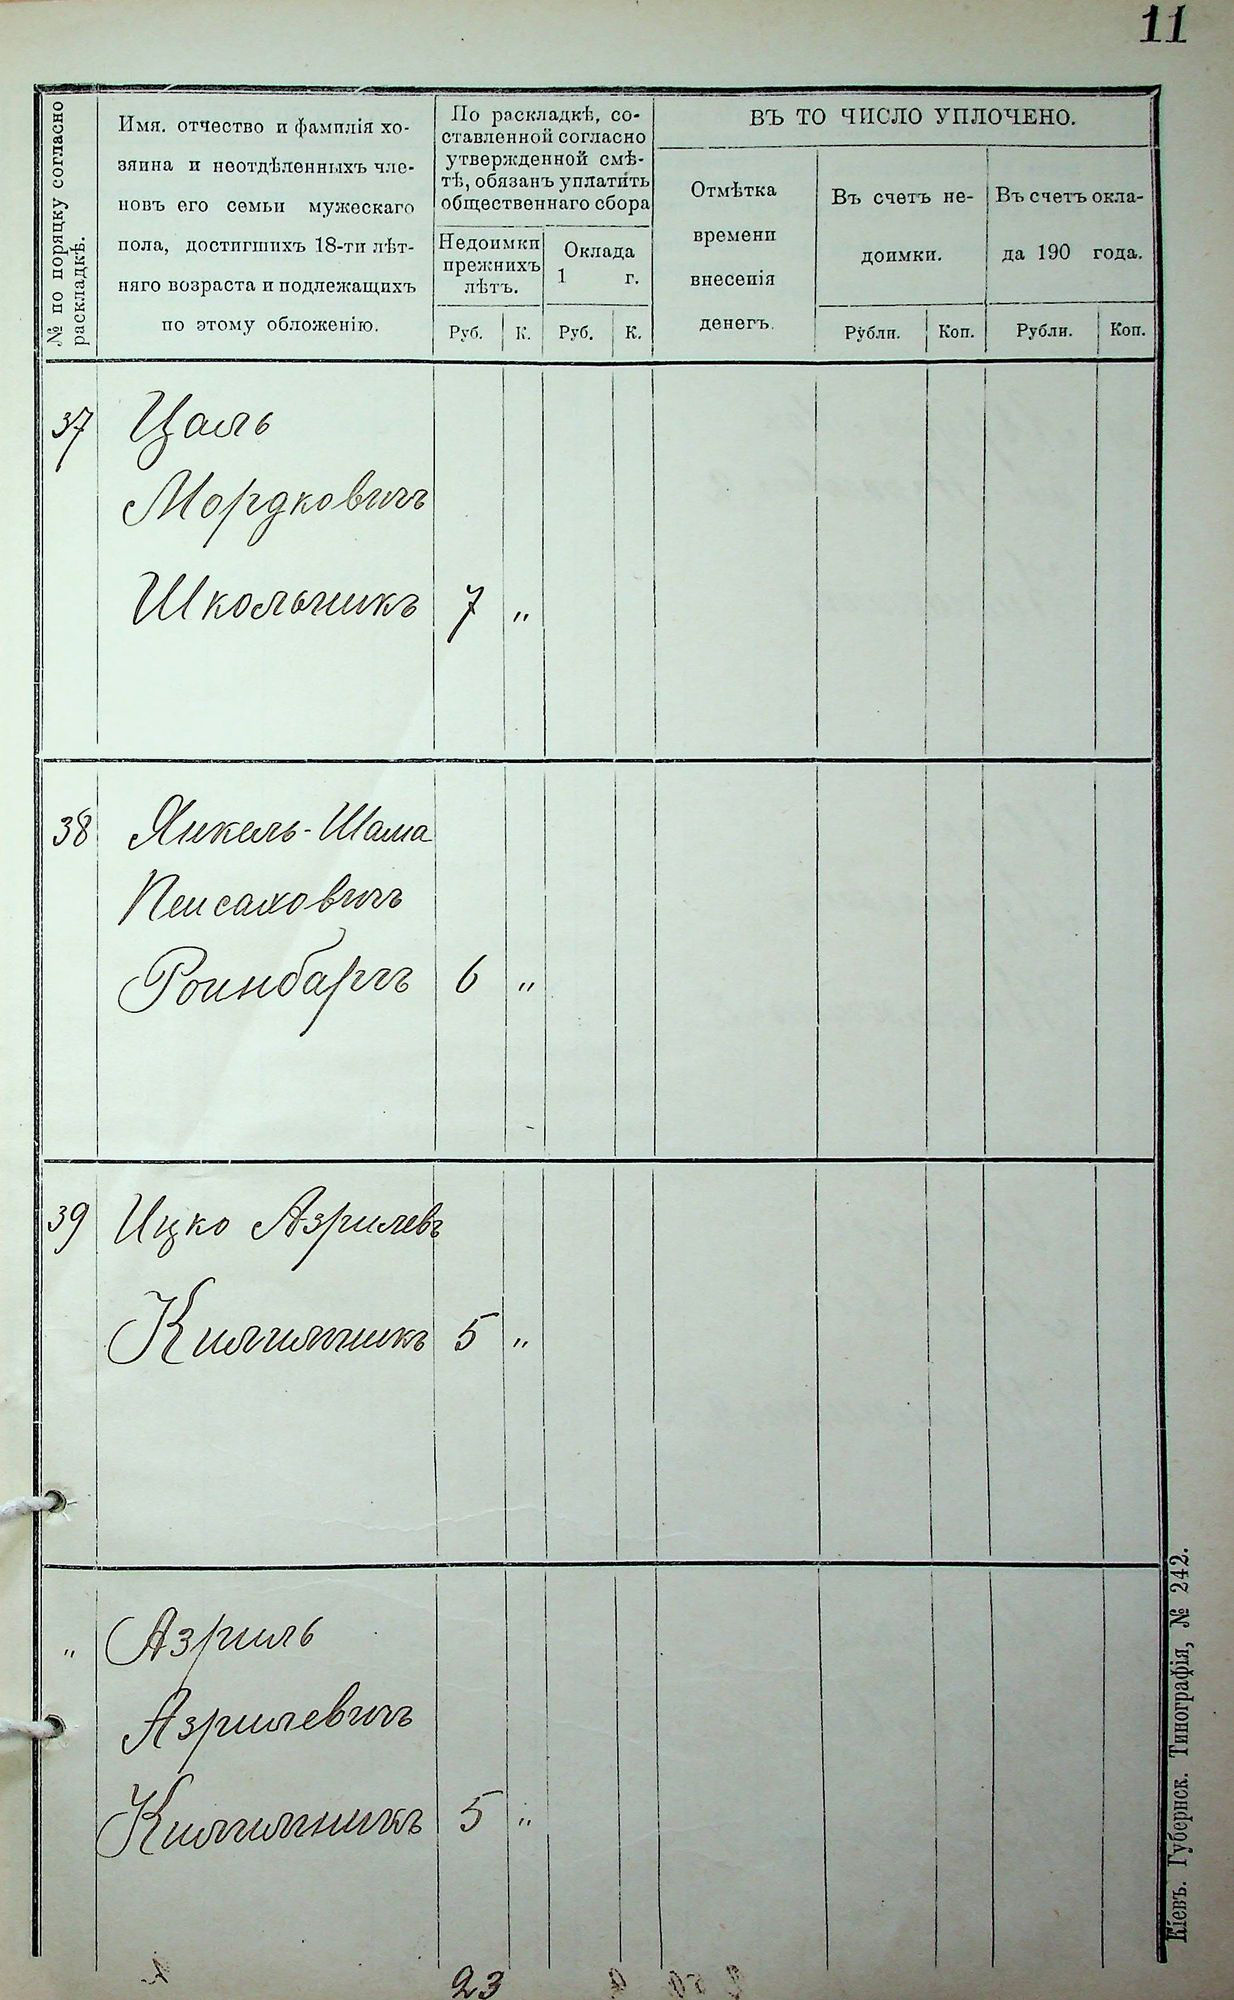 11
№ по поряцку согласно
раскладкѣ.
Имя, отчество и фамилія хо-
зяина и неотдѣленныхъ чле-
новъ его семьи мужескаго
пола, достигшихъ 18-ти лѣт-
няго возраста и подлежащихъ
по этому обложенію.
По раскладкѣ, со-
ставленной согласно
утвержденной смѣ-
тѣ, обязанъ уплатить
общественнаго сбора
Недоимки
прежнихъ
лѣтъ.
Оклада
1 г.
Руб. К. Руб. К.
ВЪ ТО ЧИСЛО УПЛОЧЕНО.
Отмѣтка
времени
внесенія
денегъ.
Въ счетъ не-
доимки.
Въ счетъ окла-
да 190 года.
Рубли. Коп. Рубли. Коп.
37 Цаль
Мордковичъ
Школьникъ 7 „
38 Янкель-Шама
Пейсаховичъ
Роинбаргъ 6 „
39 Ицко Азрилевъ
Килимникъ 5 „
„ Азриль
Азрилевичъ
Килимникъ 5 „
23
Кіевъ. Губернск. Типографія, № 242.